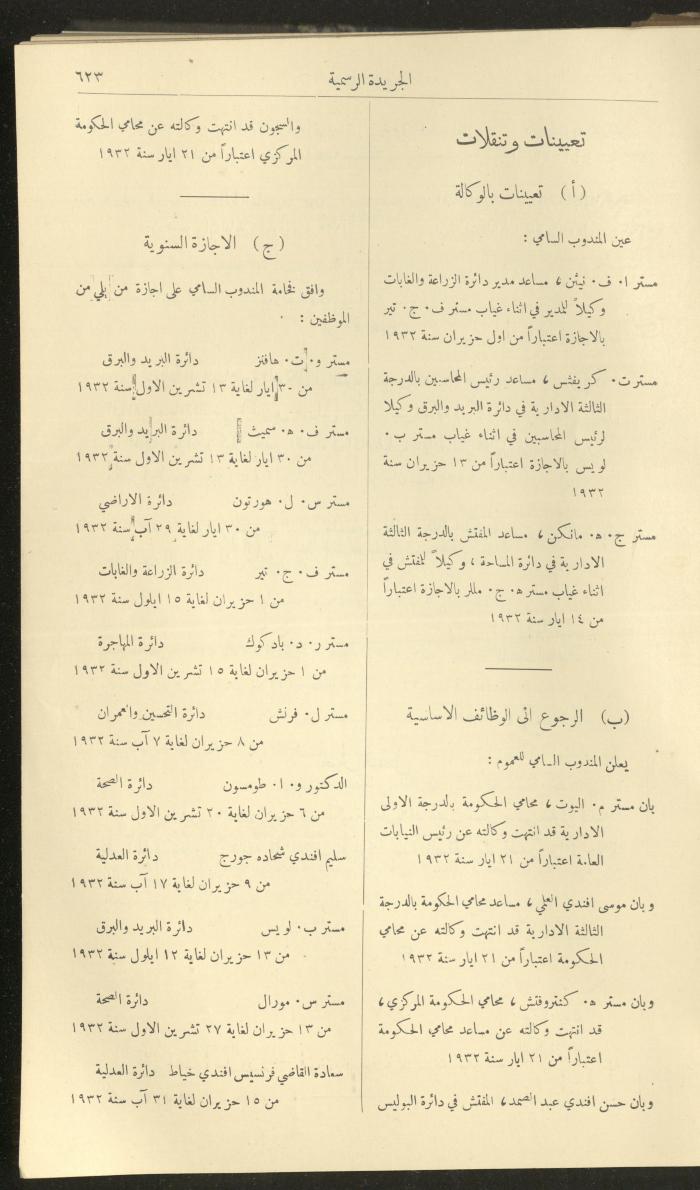 الجريدة الرسمية
٦٢٣
تعيينات وتنقلات
(أ) تعيينات بالوكالة
عين المندوب السامي :
مستر ا٠ ف٠ نيثن ، مساعد مدير دائرة الزراعة والغابات
وكيلاً للمدير في اثناء غياب مستر ف٠ ج٠ تير
بالاجازة اعتباراً من اول حزيران سنة ١٩٣٢
مستر ت٠ كريفثس ، مساعد رئيس المحاسبين بالدرجة
الثالثة الادارية في دائرة البريد والبرق وكيلا
لرئيس المحاسبين في اثناء غياب مستر ب٠
لويس بالاجازة اعتباراً من ١٣ حزيران سنة
١٩٣٢
مستر ج٠ ه٠ مانكن ، مساعد المفتش بالدرجة الثالثة
الادارية في دائرة المساحة ، وكيلاً للمفتش في
اثناء غياب مستر ه٠ ج٠ مللر بالاجازة اعتباراً
من ١٤ ايار سنة ١٩٣٢
(ب) الرجوع الى الوظائف الاساسية
يعلن المندوب السامي للعموم :
بان مستر م٠ اليوت ، محامي الحكومة بالدرجة الاولى
الادارية قد انتهت وكالته عن رئيس النيابات
العامة اعتباراً من ٢١ ايار سنة ١٩٣٢
وبان موسى افندي العلمي ، مساعد محامي الحكومة بالدرجة
الثالثة الادارية قد انتهت وكالته عن محامي
الحكومة اعتباراً من ٢١ ايار سنة ١٩٣٢
وبان مستر ه٠ كنتروفتش ، محامي الحكومة المركزي ،
قد انتهت وكالته عن مساعد محامي الحكومة
اعتباراً من ٢١ ايار سنة ١٩٣٢
وبان حسن افندي عبد الصمد ، المفتش في دائرة البوليس
والسجون قد انتهت وكالته عن محامي الحكومة
المركزي اعتباراً من ٢١ ايار سنة ١٩٣٢
(ج) الاجازة السنوية
وافق فخامة المندوب السامي على اجازة من يلي من
الموظفين :
مستر و٠ ت٠ هافنز دائرة البريد والبرق
من ٣٠ ايار لغاية ١٣ تشرين الاول سنة ١٩٣٢
مستر ف٠ ه٠ سميث دائرة البريد والبرق
من ٣٠ ايار لغاية ١٣ تشرين الاول سنة ١٩٣٢
مستر س٠ ل٠ هورتون دائرة الاراضي
من ٣٠ ايار لغاية ٢٩ آب سنة ١٩٣٢
مستر ف٠ ج٠ تير دائرة الزراعة والغابات
من ١ حزيران لغاية ١٥ ايلول سنة ١٩٣٢
مستر ر٠ د٠ بادكوك دائرة المهاجرة
من ١ حزيران لغاية ١٥ تشرين الاول سنة ١٩٣٢
مستر ل٠ فرنش دائرة التحسين والعمران
من ٨ حزيران لغاية ٧ آب سنة ١٩٣٢
الدكتور و٠ ا٠ طومسون دائرة الصحة
من ٦ حزيران لغاية ٢٠ تشرين الاول سنة ١٩٣٢
سليم افندي شحاده جورج دائرة العدلية
من ٩ حزيران لغاية ١٧ آب سنة ١٩٣٢
مستر ب٠ لويس دائرة البريد والبرق
من ١٣ حزيران لغاية ١٢ ايلول سنة ١٩٣٢
مستر س٠ مورال دائرة الصحة
من ١٣ حزيران لغاية ٢٧ تشرين الاول سنة ١٩٣٢
سعادة القاضي فرنسيس افندي خياط دائرة العدلية
من ١٥ حزيران لغاية ٣١ آب سنة ١٩٣٢